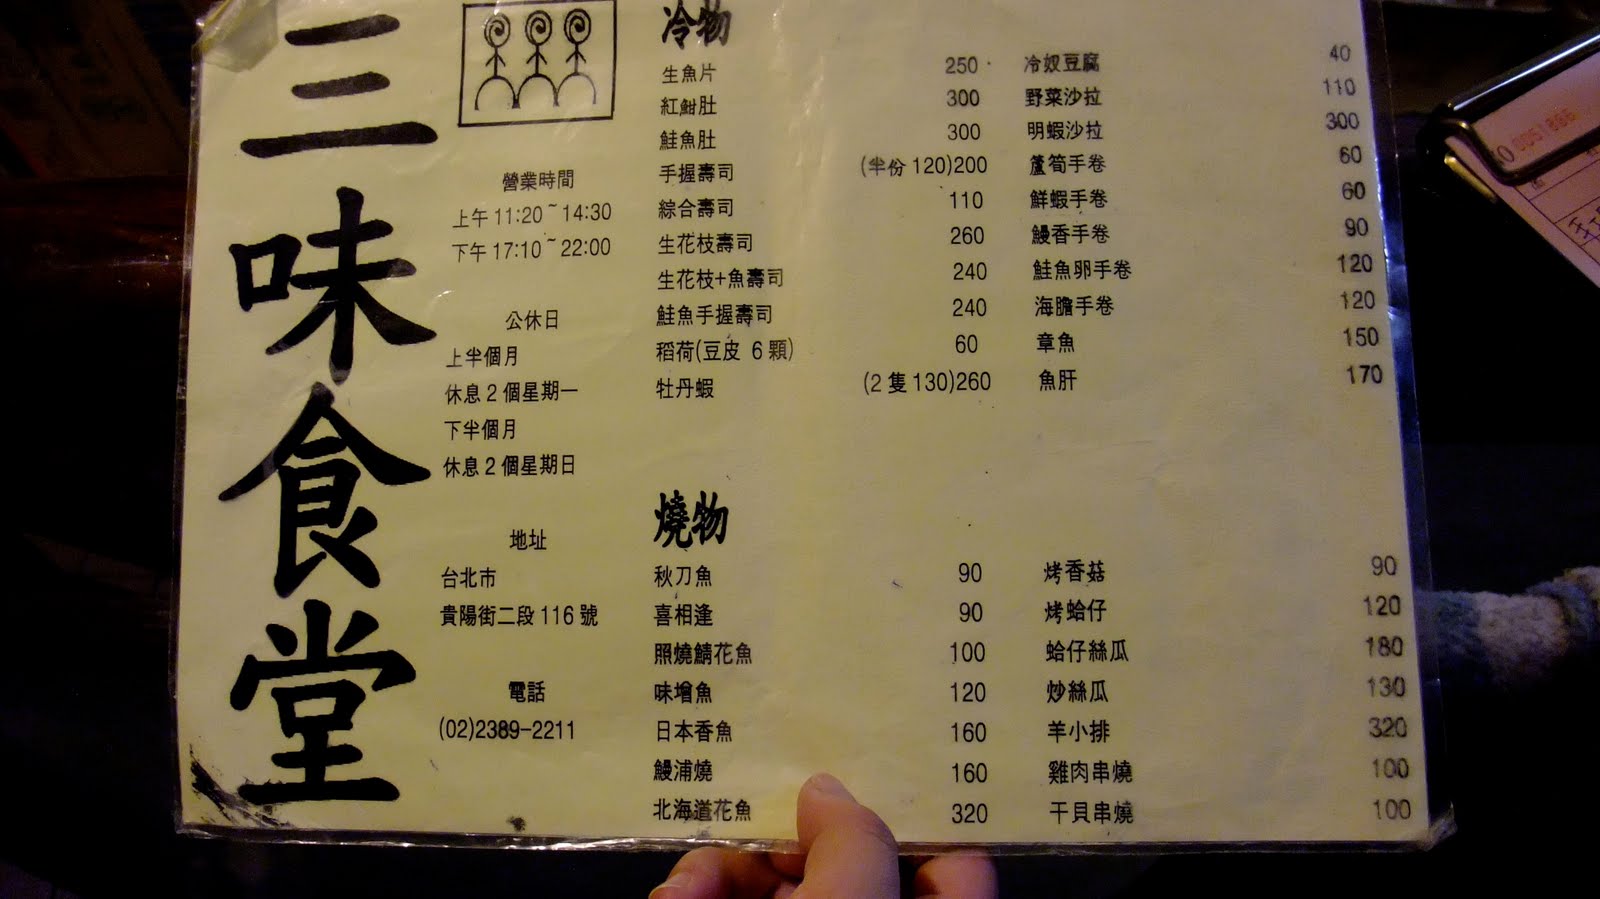 三味食堂
營業時間
上午 11:20 ~ 14:30
下午 17:10 ~ 22:00
公休日
上半個月
休息 2 個星期一
下半個月
休息 2 個星期日
地址
台北市
貴陽街二段 116 號
電話
(02)2389-2211
冷物
生魚片 250 冷奴豆腐 40
紅魽肚 300 野菜沙拉 110
鮭魚肚 300 明蝦沙拉 300
手握壽司 (半份 120)200 蘆筍手卷 60
綜合壽司 110 鮮蝦手卷 60
生花枝壽司 260 鰻香手卷 90
生花枝+魚壽司 240 鮭魚卵手卷 120
鮭魚手握壽司 240 海膽手卷 120
稻荷(豆皮 6 顆) 60 章魚 150
牡丹蝦 (2 隻 130)260 魚肝 170
燒物
秋刀魚 90 烤香菇 90
喜相逢 90 烤蛤仔 120
照燒鯖花魚 100 蛤仔絲瓜 180
味增魚 120 炒絲瓜 130
日本香魚 160 羊小排 320
鰻浦燒 160 雞肉串燒 100
北海道花魚 320 干貝串燒 100